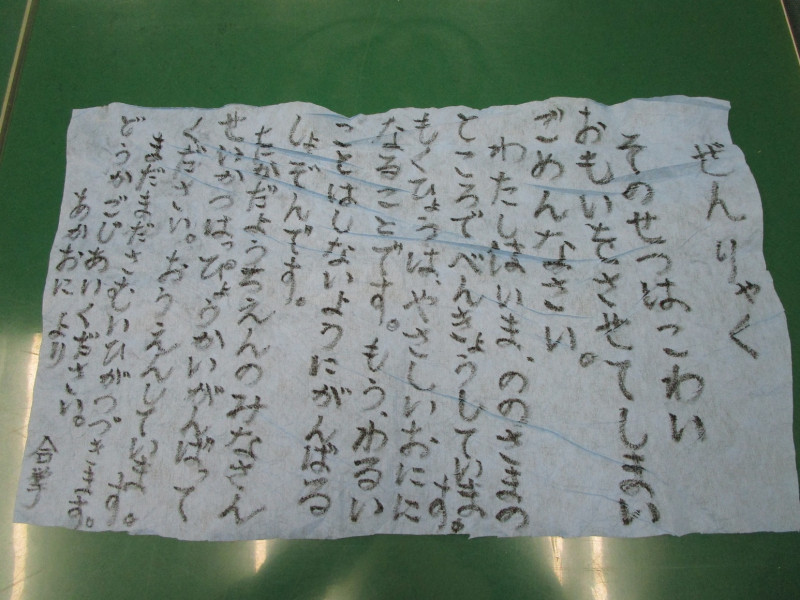 ぜんりゃく
そのせつはこわい
おもいをさせてしまい
ごめんなさい。
わたしはいま、ののさまの
ところでべんきょうしています。
もくひょうは、やさしいおにに
なることです。もう、わるい
ことはしないようにがんばる
しょぞんです。
たかだようちえんのみなさん
せいかつはっぴょうかいがんばって
ください。おうえんしています。
まだまださむいひがつづきます。
どうかごじあいください。
あかおにより 合掌